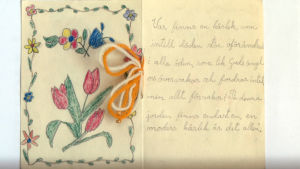 Var finns en kärlek, som
intill döden blir oförändrad
i alla öden, som lik Guds ängel
oss övervakar och fordrar intet
men allt försakar? På denna
jorden finns endast en, en
moders kärlek är det allén.